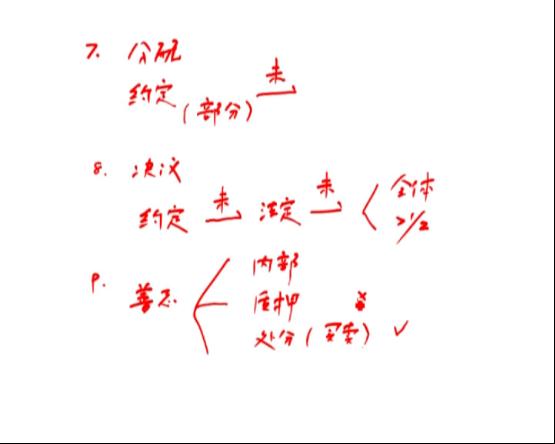 7. 分配
约定(部分) 未
8. 决议
约定 未 法定 未 全体
>1/2
9. 善意 内部
质押 ×
处分(买卖) ✓